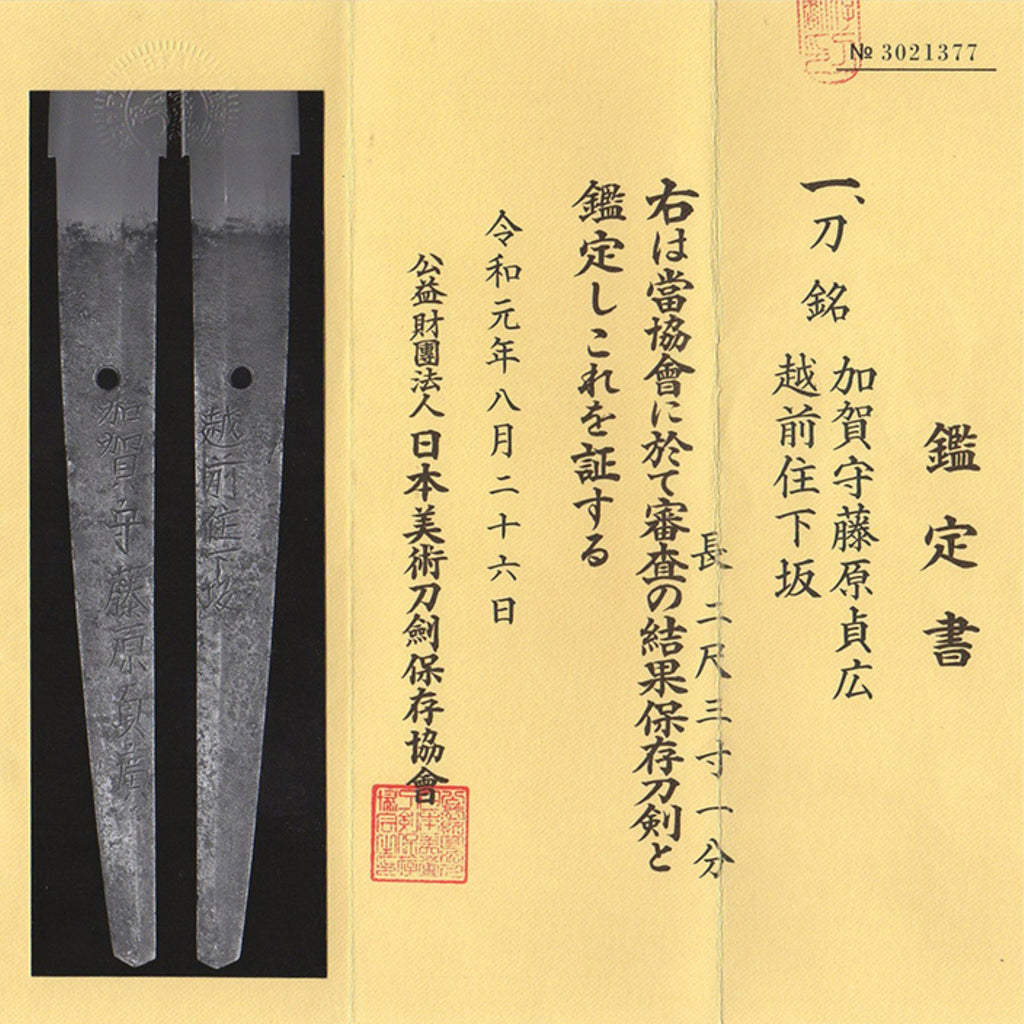 № 3021377
鑑定書
一、刀 銘 加賀守藤原貞広
越前住下坂
長 二尺三寸一分
右は當協會に於て審査の結果保存刀剣と
鑑定しこれを証する
令和元年八月二十六日
公益財團法人 日本美術刀劍保存協會
越前住下坂
加賀守藤原貞広